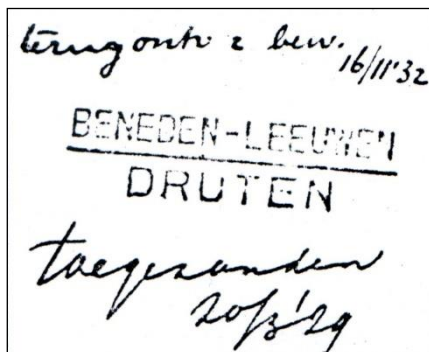 terug ontv. 2 bew.
16/11'32
BENEDEN-LEEUWEN
DRUTEN
toegezonden
20/3'29